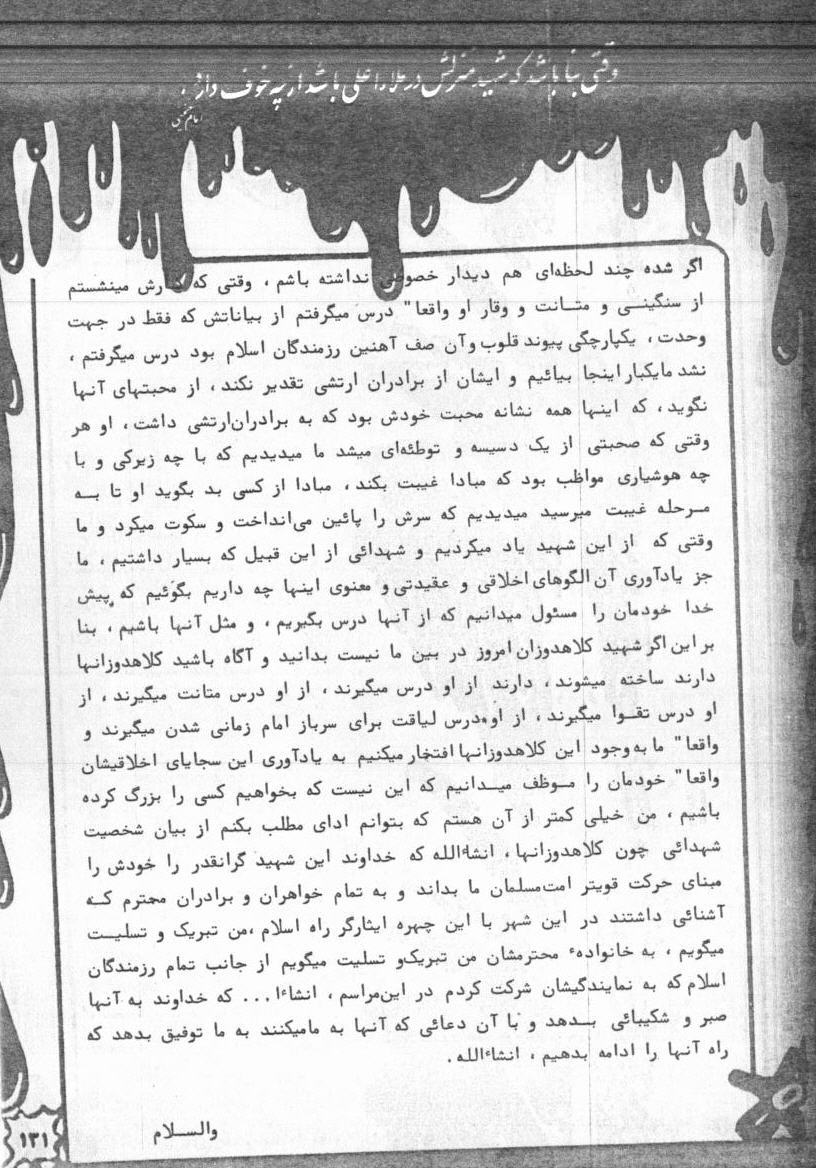 وقتی بنا باشد که شهید منزلش در ملاء اعلی باشد از چه خوف دارد.
امام خمینی
اگر شده چند لحظه‌ای هم دیدار خصوصی نداشته باشم ، وقتی که کنارش مینشستم
از سنگینــی و متــانت و وقار او واقعا" درس میگرفتم از بیاناتش که فقط در جهت
وحدت ، یکپارچگی پیوند قلوب وآن صف آهنین رزمندگان اسلام بود درس میگرفتم ،
نشد مایکبار اینجا بیائیم و ایشان از برادران ارتشی تقدیر نکند ، از محبتهای آنها
نگوید ، که اینها همه نشانه محبت خودش بود که به برادران‌ارتشی داشت ، او هر
وقتی که صحبتی از یک دسیسه و توطئه‌ای میشد ما میدیدیم که با چه زیرکی و با
چه هوشیاری مواظب بود که مبادا غیبت بکند ، مبادا از کسی بد بگوید او تا بــه
مـرحله غیبت میرسید میدیدیم که سرش را پائین می‌انداخت و سکوت میکرد و ما
وقتی که از این شهید یاد میکردیم و شهدائی از این قبیل که بسیار داشتیم ، ما
جز یادآوری آن الگوهای اخلاقی و عقیدتی و معنوی اینها چه داریم بگوئیم که پیش
خدا خودمان را مسئول میدانیم که از آنها درس بگیریم ، و مثل آنها باشیم ، بنا
بر این اگر شهید کلاهدوزان امروز در بین ما نیست بدانید و آگاه باشید کلاهدوزانها
دارند ساخته میشوند ، دارند از او درس میگیرند ، از او درس متانت میگیرند ، از
او درس تقــوا میگیرند ، از او درس لیاقت برای سرباز امام زمانی شدن میگیرند و
واقعا" ما به‌وجود این کلاهدوزانها افتخار میکنیم به یادآوری این سجایای اخلاقیشان
واقعا" خودمان را مــوظف میــدانیم که این نیست که بخواهیم کسی را بزرگ کرده
باشیم ، من خیلی کمتر از آن هستم که بتوانم ادای مطلب بکنم از بیان شخصیت
شهدائی چون کلاهدوزانها ، انشاءالله که خداوند این شهید گرانقدر را خودش را
مبنای حرکت قویتر امت‌مسلمان ما بداند و به تمام خواهران و برادران محترم کــه
آشنائی داشتند در این شهر با این چهره ایثارگر راه اسلام ،من تبریک و تسلیــت
میگویم ، به خانوادهء محترمشان من تبریک‌و تسلیت میگویم از جانب تمام رزمندگان
اسلام که به نمایندگیشان شرکت کردم در این‌مراسم ، انشاءا ... که خداوند به آنها
صبر و شکیبائی بــدهد و با آن دعائی که آنها به مامیکنند به ما توفیق بدهد که
راه آنها را ادامه بدهیم ، انشاءالله .
والســلام
۱۳۱